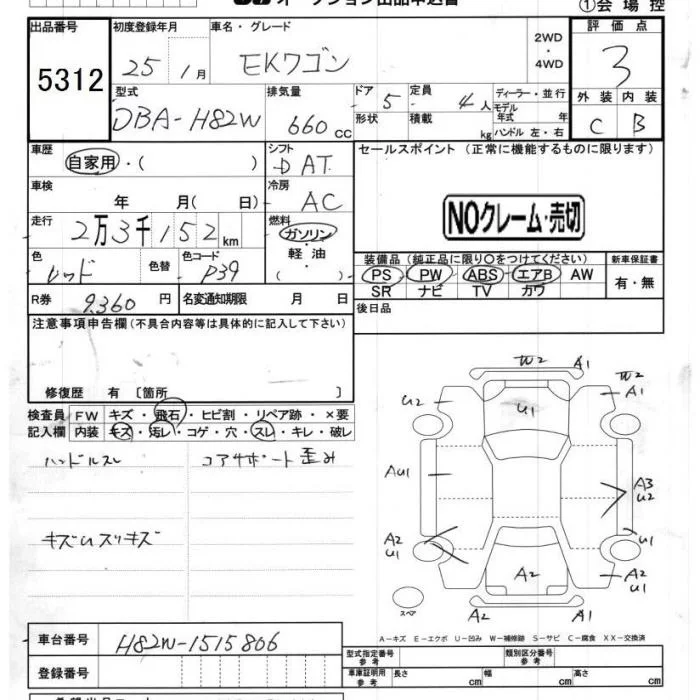 オークション出品申込書
①会場控
出品番号 初度登録年月 車名・グレード 評価点
5312 25 1月 EKワゴン 2WD・4WD 3
型式 排気量 ドア 5 定員 4人 ディーラー・並行 外装 内装
DBA-H82W 660cc 形状 積載 kg モデル年式 年 C B
ハンドル 左・右
車歴 自家用・( ) シフト DAT セールスポイント(正常に機能するものに限ります)
車検 年 月( 日) 冷房 AC
NOクレーム・売切
走行 2万3千152km 燃料 ガソリン・軽油・( )
色 レッド 色替 色コード P39
装備品(純正品に限り○をつけてください) 新車保証書
PS PW ABS エアB AW 有・無
SR ナビ TV カワ
R券 9,360円 名変通知期限 月 日 後日品
注意事項申告欄(不具合内容等は具体的に記入して下さい)
修復歴 有 〔箇所 〕
検査員 FW キズ・飛石・ヒビ割・リペア跡・×要
記入欄 内装 キズ・汚レ・コゲ・穴・スレ・キレ・破レ
ハンドルスレ コアサポート歪み
キズUスリキズ
W2 A1
U2 U1 W2 A1
AU1 A3 U2
A2 U1 U1
A2 A2 U1
スペア A2 A1
A-キズ E-エクボ U-凹み W-補修跡 S-サビ C-腐食 XX-交換済
車台番号 H82W-1515806
型式指定番号 参考 類別区分番号 参考
登録番号 車庫証明用 参考 長さ cm 幅 cm 高さ cm